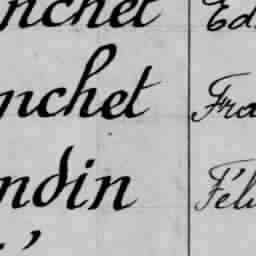 nchet Ed
nchet Fra
ndin Féli